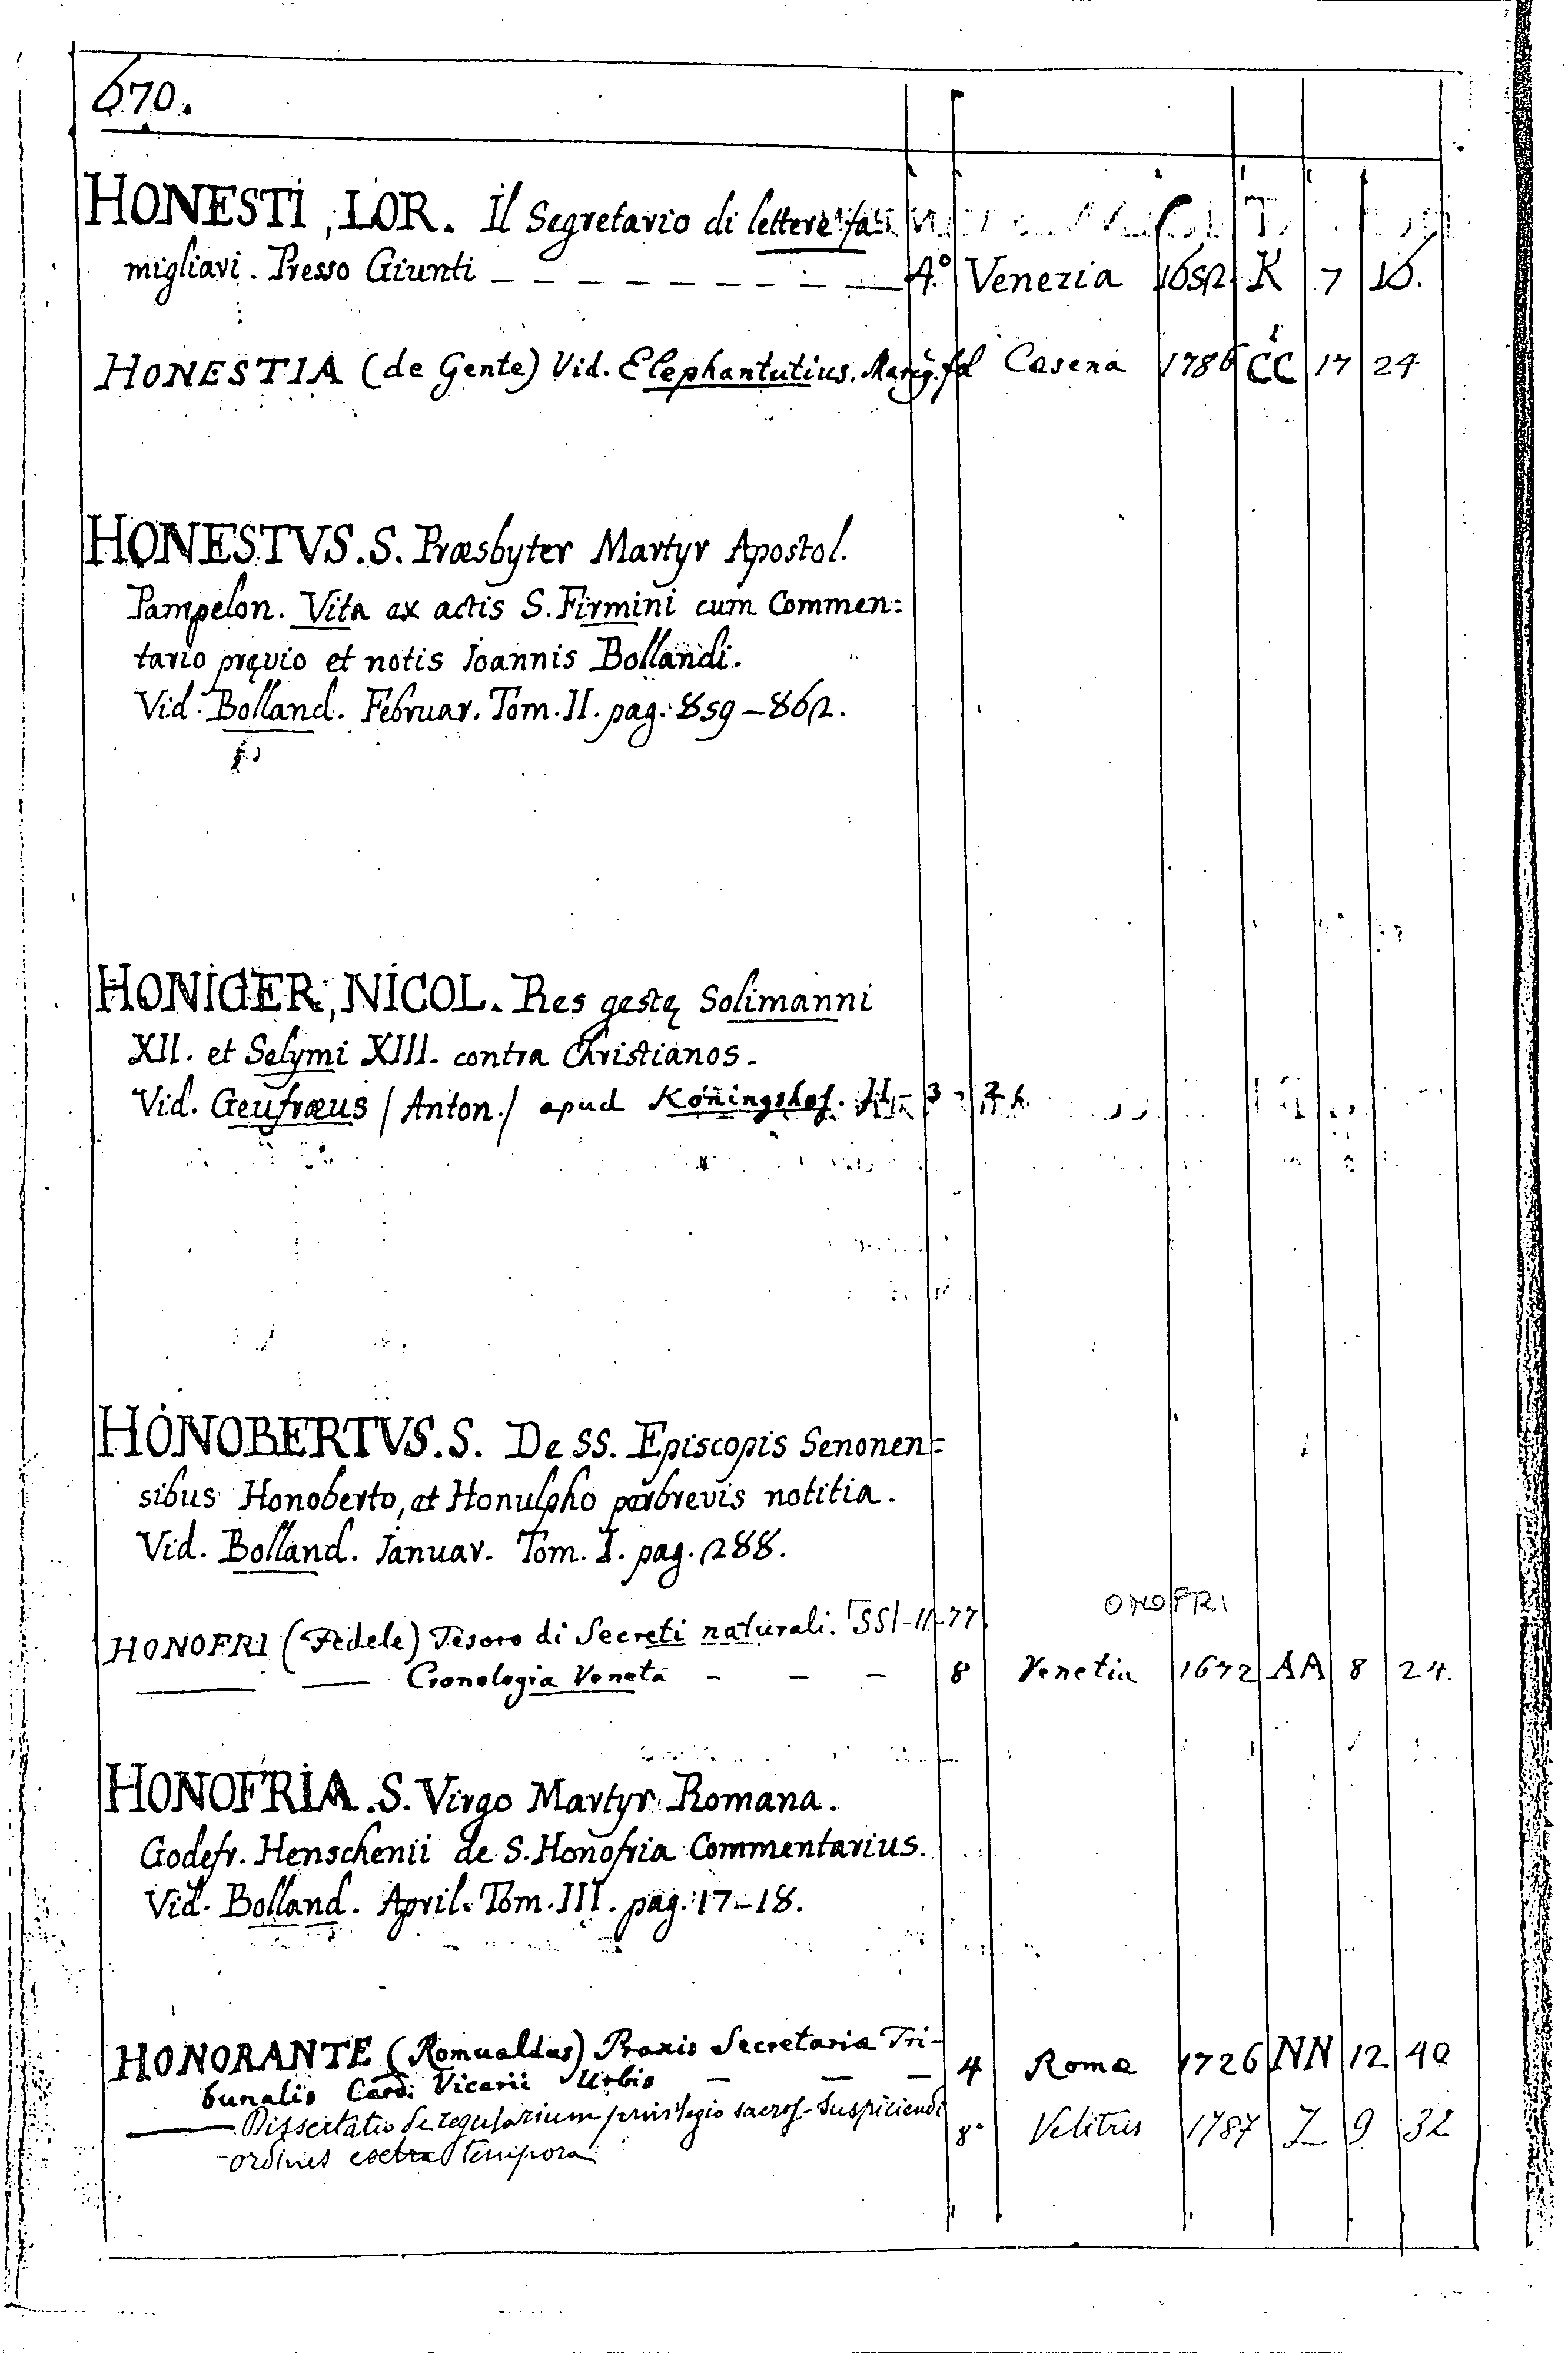 670.
HONESTI, LOR. Il Segretario di lettere fa=
migliari. Presso Giunti – – – – – – – – 4.° Venezia 1652 K 7 16.
HONESTIA (de Gente) Vid. Elephantutius. Marig. fol Casena 1786 CC 17 24
HONESTVS. S. Præsbyter Martyr Apostol.
Pampelon. Vita ex actis S. Firmini cum Commen=
tario pręvio et notis Ioannis Bollandi.
Vid. Bolland. Februar. Tom. II. pag. 859–862.
HONIGER, NICOL. Res gestę Solimanni
XII. et Selymi XIII. contra Christianos.
Vid. Geufræus / Anton./ apud Koningshof.
HONOBERTVS. S. De SS. Episcopis Senonen=
sibus Honoberto, et Honulpho perbrevis notitia.
Vid. Bolland. Ianuar. Tom. I. pag. 288.
ONOFRI
HONOFRI (Fedele) Tesoro di Secreti naturali. SS1-11-77
— — Cronologia Veneta – – – 8 Venetia 1672 AA 8 24.
HONOFRIA. S. Virgo Martyr Romana.
Godefr. Henschenii de S. Honofria Commentarius.
Vid. Bolland. April. Tom. III. pag. 17–18.
HONORANTE (Romualdus) Praxis Secretariæ Tri-
bunalis Card. Vicarii Urbis – – – 4 Romæ 1726 NN 12 40
— Dissertatio de regularium privilegio sacros. Suspiciendi 8° Velitris 1787 Z 9 32
ordines extra tempora